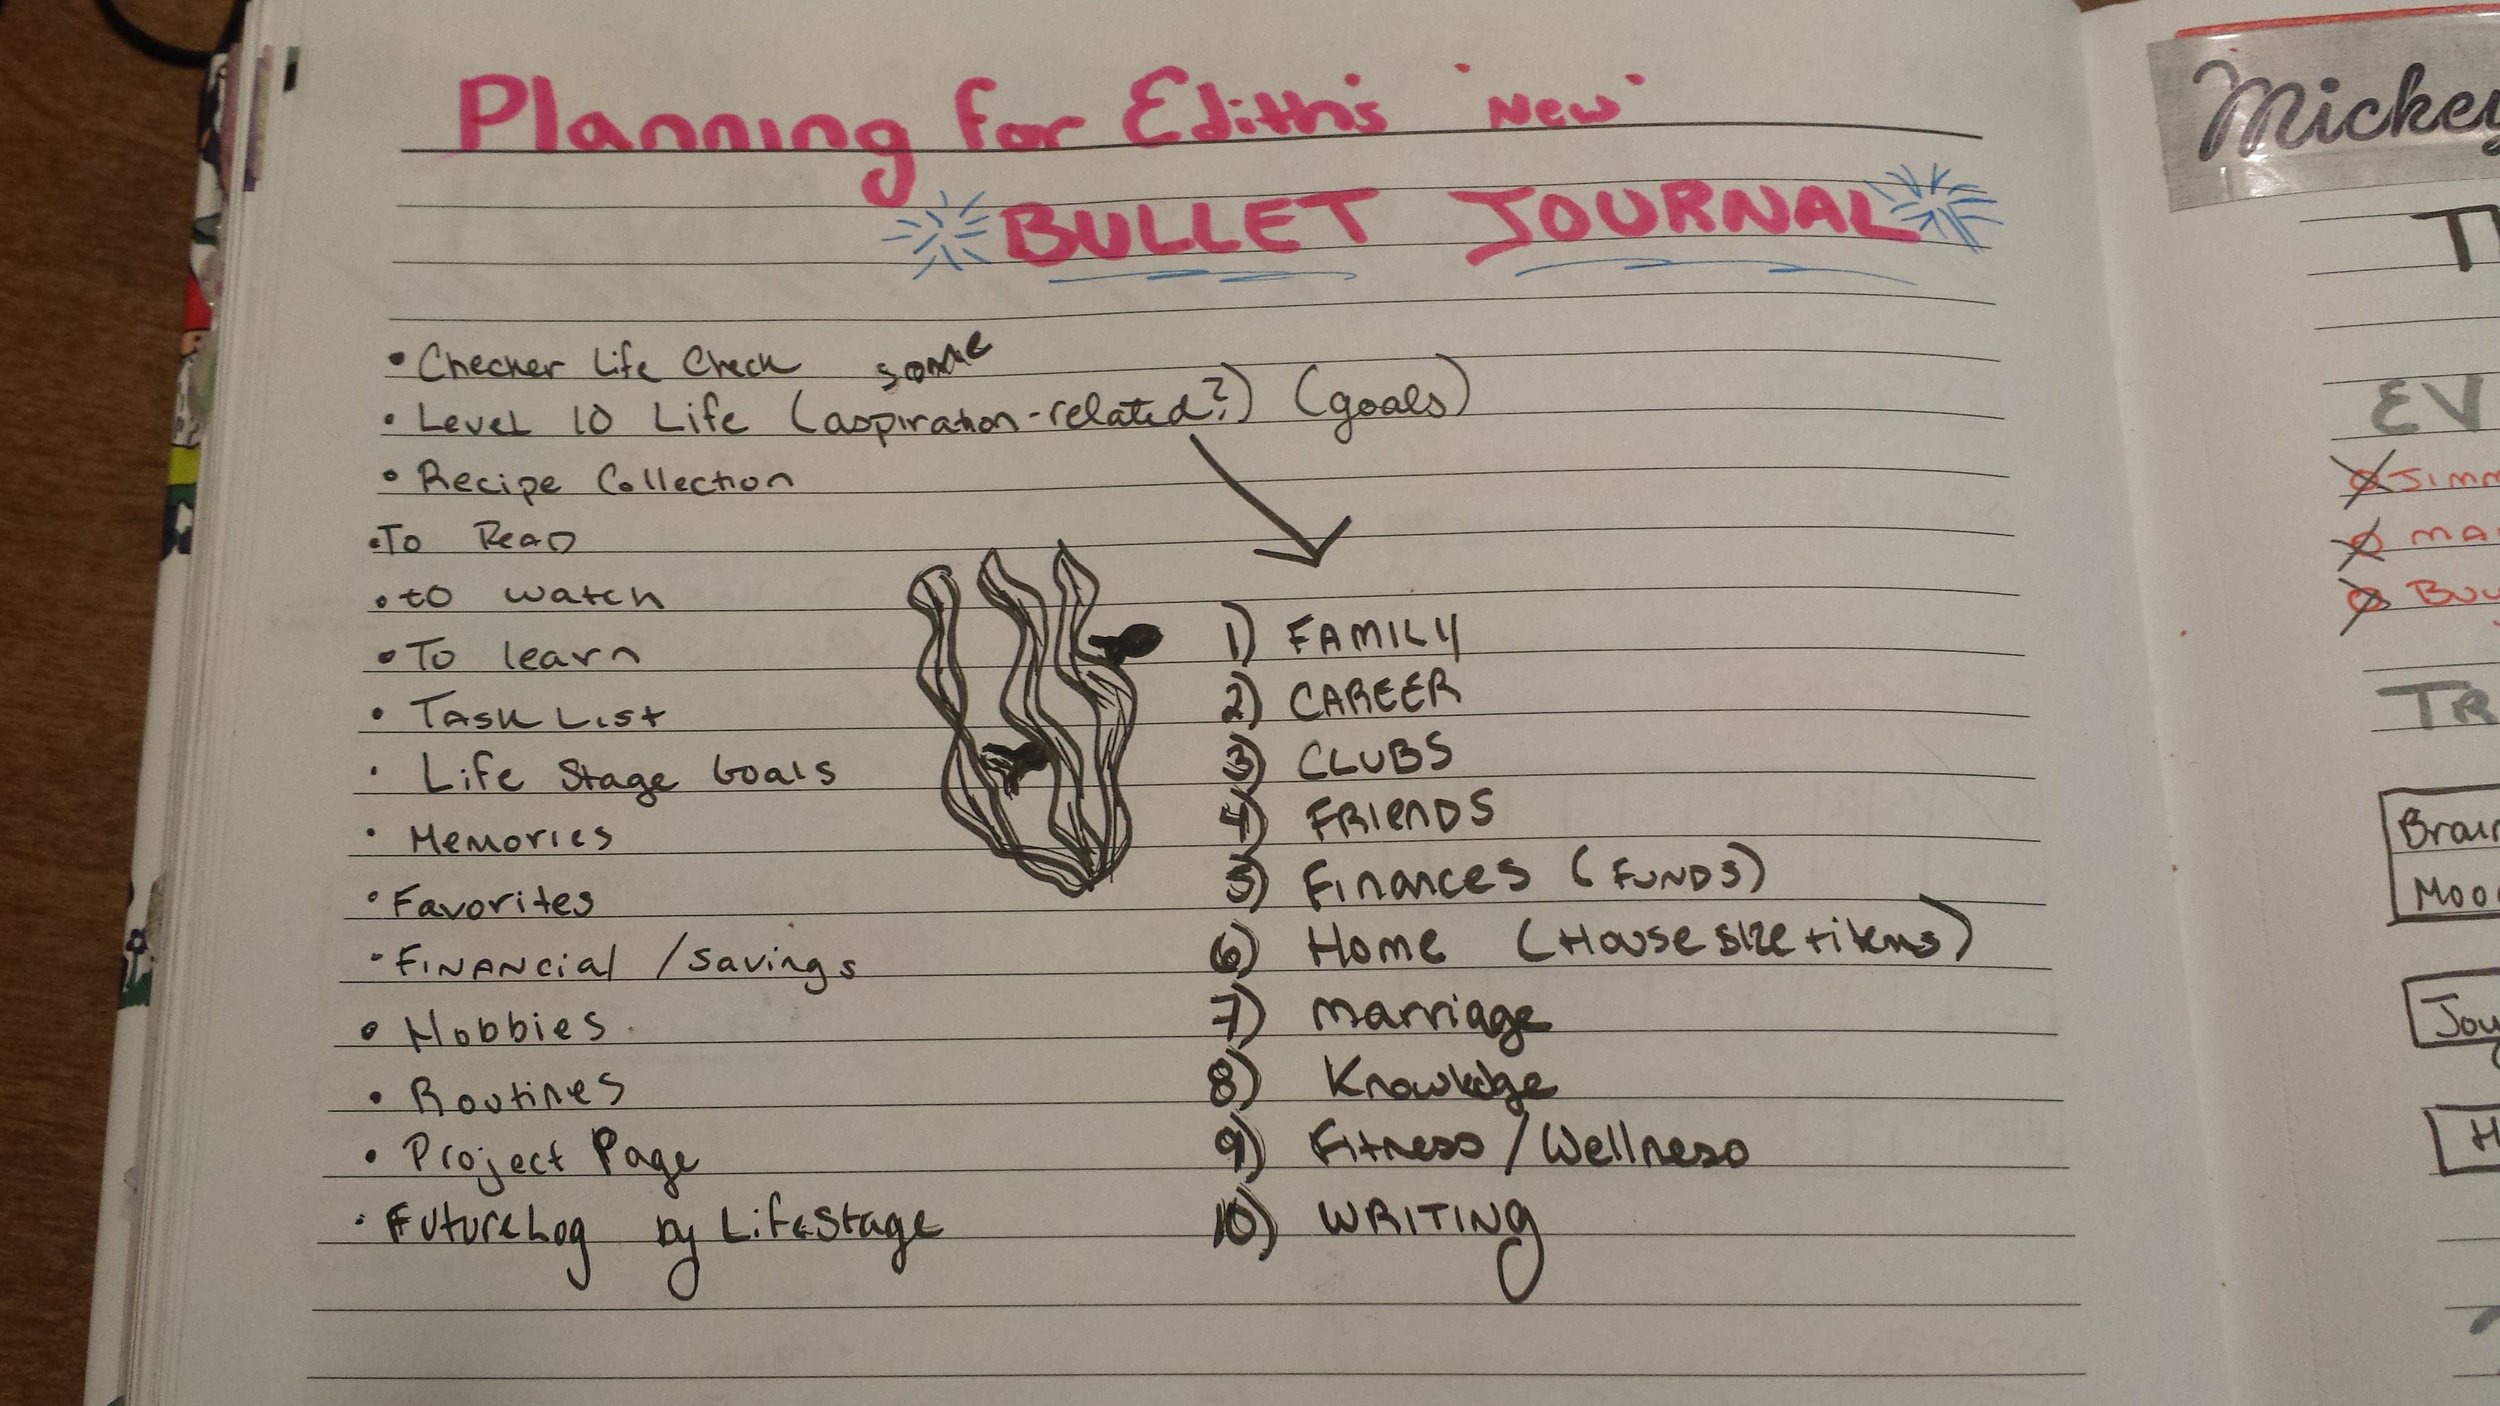 Planning for Edith's "New"
BULLET JOURNAL
• Checker Life Check
some
• Level 10 Life (aspiration-related?) (goals)
• Recipe Collection
• To Read
• to watch
• To learn
• Task List
• Life Stage Goals
• Memories
• Favorites
• Financial / Savings
• Hobbies
• Routines
• Project Page
• Future Log by Life Stage
1) FAMILY
2) CAREER
3) CLUBS
4) FRIENDS
5) Finances (FUNDS)
6) Home (House size + items)
7) Marriage
8) Knowledge
9) Fitness / Wellness
10) WRITING
Mickey
EV
TR
Brain
Moo